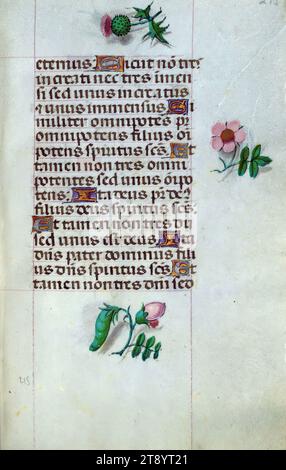 215
eternus Sicut nō tres
increati nec tres imen
si sed unus increatus
et unus immensus Si
militer omnipotēs pr̄
omnipotens filius oī
potens spiritus sc̄s Et
tamen non tres omni
potentes sed unus oīpo
tens Ita deus pr̄ de
filius deus spiritus sc̄s
Et tamen non tres dij
sed unus est deus Ita
dn̄s pater dominus filiu
s dn̄s spiritus sc̄s Et
tamen non tres dn̄i sed
215
alamy
Image ID: 2T81Y21
www.alamy.com